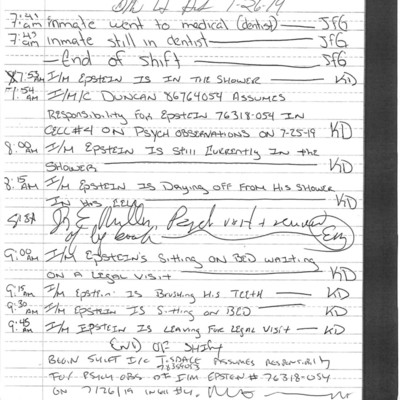 7-26-19
7:41 am inmate went to medical (dentist) JFG
7:43 am inmate still in dentist JFG
- End of Shift JFG
7:52 AM I/M EPSTEIN IS IN THE SHOWER KD
7:54 AM I/M/C DUNCAN 86764054 ASSUMES
RESPONSIBILITY FOR EPSTEIN 76318-054 IN
CELL #4 ON PSYCH OBSERVATIONS ON 7-25-19 KD
8:00 AM I/M EPSTEIN IS STILL CURRENTLY IN THE
SHOWER KD
8:15 AM I/M EPSTEIN IS DRYING OFF FROM HIS SHOWER
IN HIS CELL KD
Psych visit + removed
9:00 AM I/M EPSTEIN'S SITTING ON BED WAITING
ON A LEGAL VISIT KD
9:15 AM I/M EPSTEIN IS BRUSHING HIS TEETH KD
9:30 AM I/M EPSTEIN IS SITTING ON BED KD
9:45 AM I/M EPSTEIN IS LEAVING FOR LEGAL VISIT KD
END OF SHIFT
BEGIN SHIFT I/C TISDALE ASSUMES RESPONSIBILITY
FOR PSYCH OBS OF I/M EPSTEIN # 76318-054
ON 7/26/19 IN #4.